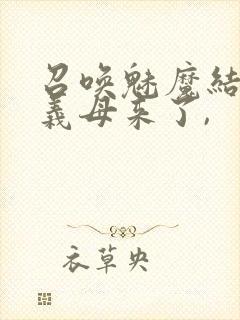 召唤魅魔結
義母来了,
衣草央